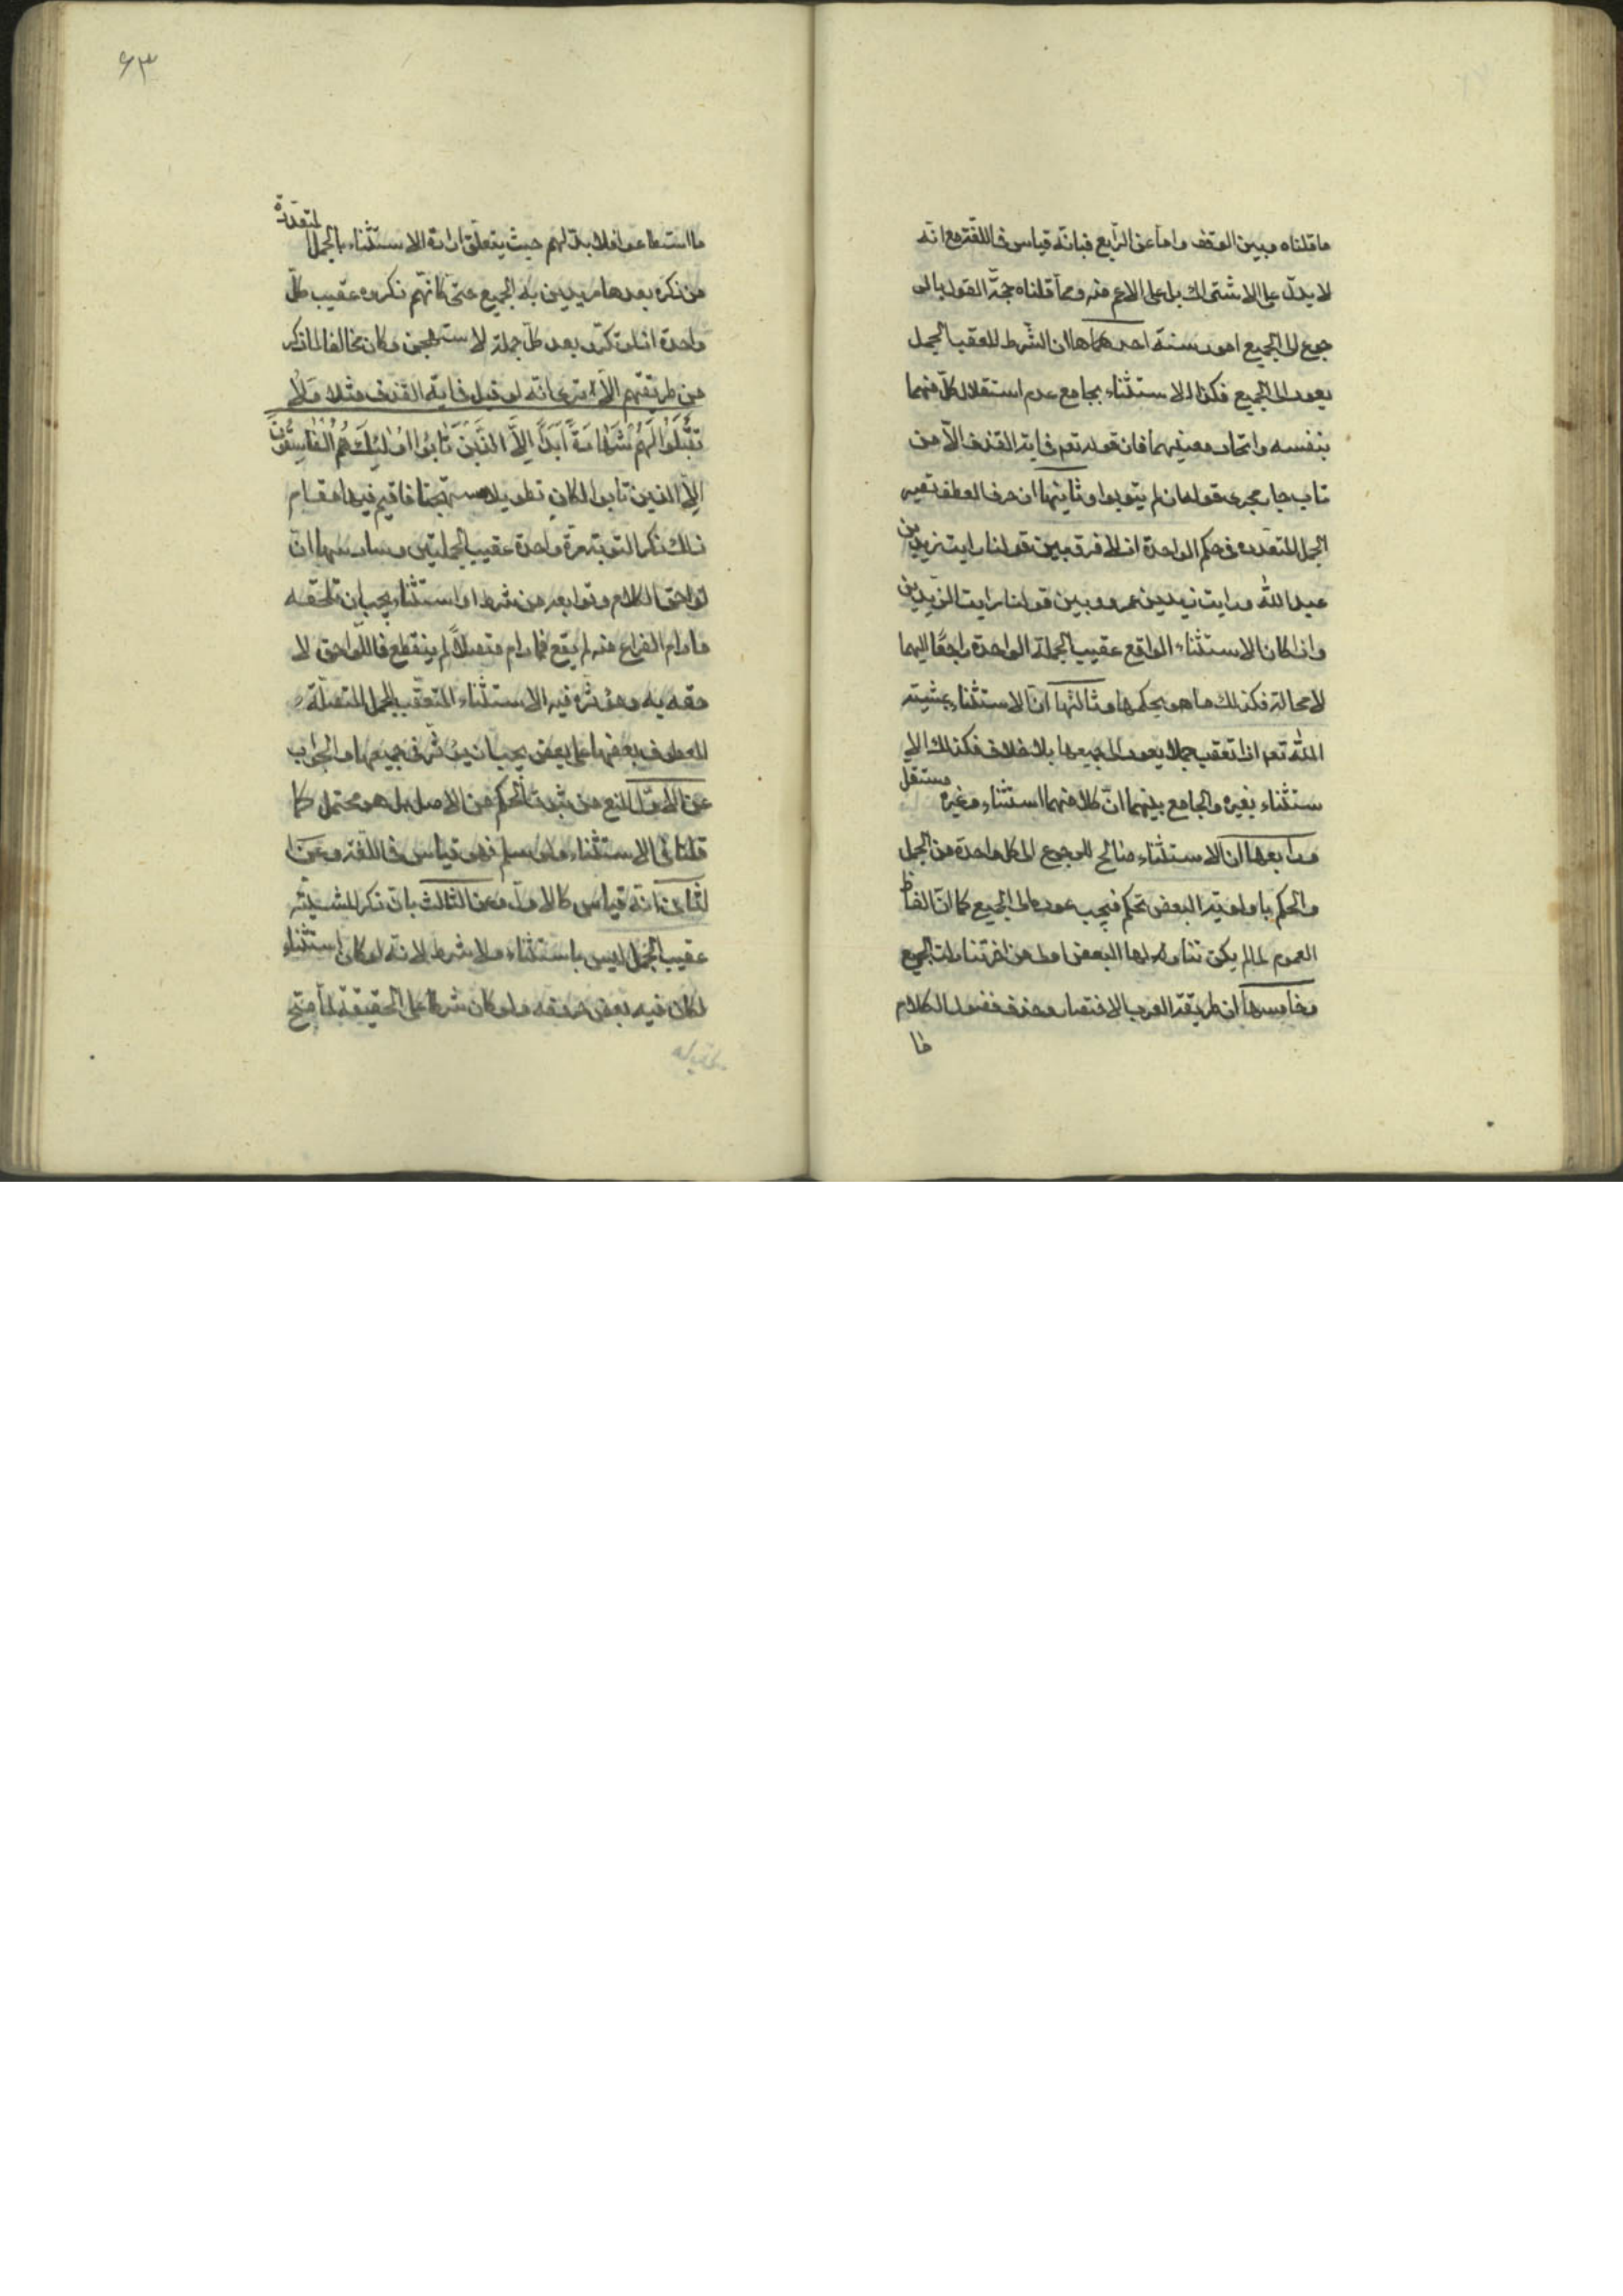 ما قلناه وبين الوقف واما عن الرّابع فبانّه قياس فى اللغة مع انّه
لا يدلّ على الاشتراك بل على الاعم منه ومما قلناه حجّة القول بالر
جوع الى الجميع امور ستة احدها ان الشّرط للعقب الجمل
يعود الى الجميع فكذا الاستثناء بجامع عدم استقلال كلّ منهما
بنفسه واتحاد معنيهما فان قوله تعم فى اية القذف الاّ من
تاب جار مجرى قوله ان لم يتوبوا وثانيها ان حرف العطف تصير
الجمل المتعدده فى حكم الواحدة اذ لا فرق بين قولنا رايت زيد بن
عبد الله ورايت زيد بن عمرو وبين قولنا رايت الزّيدين
واذا كان الاستثناء الواقع عقيب الجملة الواحدة راجعًا اليها
لا محالة فكذلك ما هو بحكمها وثالثها انّ الاستثناء بمشيته
اللّه تعم اذا تعقب جملا يعود الى جميعها بلا خلاف فكذلك الا
ستثناء بغيره والجامع بينهما انّ كلا منهما استثناء وغير مستقل
ورابعها ان الاستثناء صالح للرجوع الى كل واحدة من الجمل
والحكم باولوية البعض تحكم فيجب عوده الى الجميع كما انّ الفاظ
العموم لما لم يكن تناولها لبعض اولى من اخر تناولت الجميع
وخامسها ان طريقة العرب الاختصار وحذف فضول الكلام
ما
۶۳
ما استطاعوا فلا بدّ لهم حيث يتعلق ارادة الاستثناء بالجمل المتعددة
من ذكره بعدها مريدين به الجميع حتى كانّهم ذكروه عقيب كلّ
واحدة اذ لو تكرّر بعد كلّ جملة لاستهجن وكان مخالفا لما ذكر
من طريقتهم الا ترى انّه لو قيل فى اية القذف مثلا وَلاَ
تَقْبَلُوا لَهُمْ شَهَادَةً اَبَدًا اِلاَّ الَّذينَ تَابُوا اُولئِكَ هُمُ الْفَاسِقُونَ
اِلاّ الذين تابوا لكان تطويلا مستهجنا فاقيم فيها مقام
ذلك ذكر التوبة مرّة واحدة عقيب الجملتين وسادسها انّ
لواحق الكلام وتوابعه من شرط او استثناء يجب ان تلحقه
ما دام الفراغ منه لم يقع فما دام متصلاً لم ينقطع فاللواحق لا
حقه به ومؤثره فيه الاستثناء المتعقب للجمل المتصلة
المعطوف بعضها على بعض يجب ان يؤثر فى جميعها والجواب
عن الاوّل المنع من ثبوت الحكم من الاصل بل هو محتمل كما
قلنا فى الاستثناء ولو سلم فهو قياس فى اللغة وعن ا
لثانى انه قياس كالاول وعن الثالث بان ذكر المشيّته
عقيب الجمل ليس باستثناء ولا شرط لانه لو كان استثناء
لكان فيه بعض حروفه ولو كان شرطا على الحقيقة لما صح